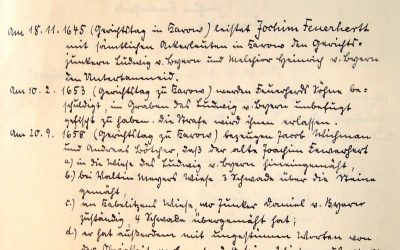 Am 18.11. 1645 (Gerichtstag in Zarow) leistet Jochim Feuerherdt
mit sämtlichen Ackerleuten in Zarow den Gerichts-
junkern Ludwig v. Byern und Melchior Heinrich v. Byern
den Untertaneneid.
Am 10. 2. 1653 (Gerichtstag zu Zarow) werden Feuerherdts Söhne be-
schuldigt, im Graben des Ludwig v. Byern unbefugt
gefischt zu haben. Die Strafe wird ihnen erlassen.
Am 20. 9. 1658 (Gerichtstag zu Zarow) bezeugen Jacob Wichman
und Andreas Böttcher, daß der alte Joachim Feuerherdt
a) in die Wiese des Ludwig v. Byern hineingemäht,
b) bei Valtin Meyers Wiese 3 Schwade über die Steine
gemäht,
c) an Wiese, wo Junker Daniel v. Byern
zuständig, 4 Schwade übergemäht hat;
d) er hat außerdem mit ungestümen Worten von